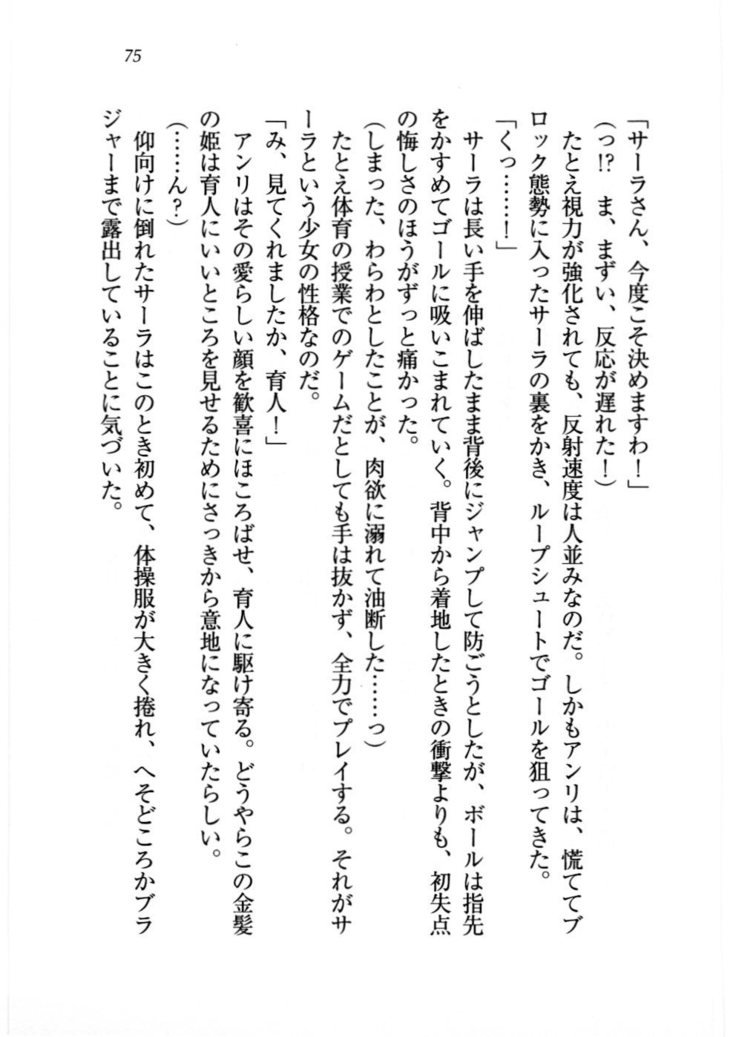 75
「サーラさん、今度こそ決めますわ！」
(っ!?　ま、まずい、反応が遅れた！)
　たとえ視力が強化されても、反射速度は人並みなのだ。しかもアンリは、慌ててブ
ロック態勢に入ったサーラの裏をかき、ループシュートでゴールを狙ってきた。
「くっ……！」
　サーラは長い手を伸ばしたまま背後にジャンプして防ごうとしたが、ボールは指先
をかすめてゴールに吸いこまれていく。背中から着地したときの衝撃よりも、初失点
の悔しさのほうがずっと痛かった。
(しまった、わらわとしたことが、肉欲に溺れて油断した……っ)
　たとえ体育の授業でのゲームだとしても手は抜かず、全力でプレイする。それがサ
ーラという少女の性格なのだ。
「み、見てくれましたか、育人！」
　アンリはその愛らしい顔を歓喜にほころばせ、育人に駆け寄る。どうやらこの金髪
の姫は育人にいいところを見せるためにさっきから意地になっていたらしい。
(……ん？)
　仰向けに倒れたサーラはこのとき初めて、体操服が大きく捲れ、へそどころかブラ
ジャーまで露出していることに気づいた。